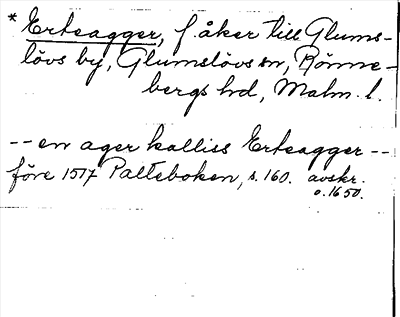 * Ertsagger, f. åker till Glums-
lövs by, Glumslövs sn, Rönne-
bergs hd, Malm. l.
-- en ager kalliss Ertsagger --
före 1517 Palteboken, s. 160. avskr.
o. 1650.